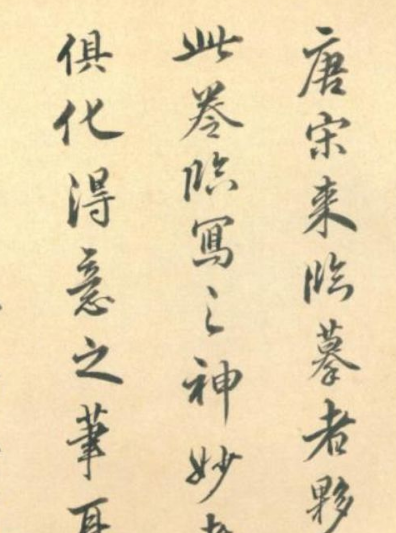 唐宋来臨摹者夥
此卷臨寫之神妙
俱化得意之筆